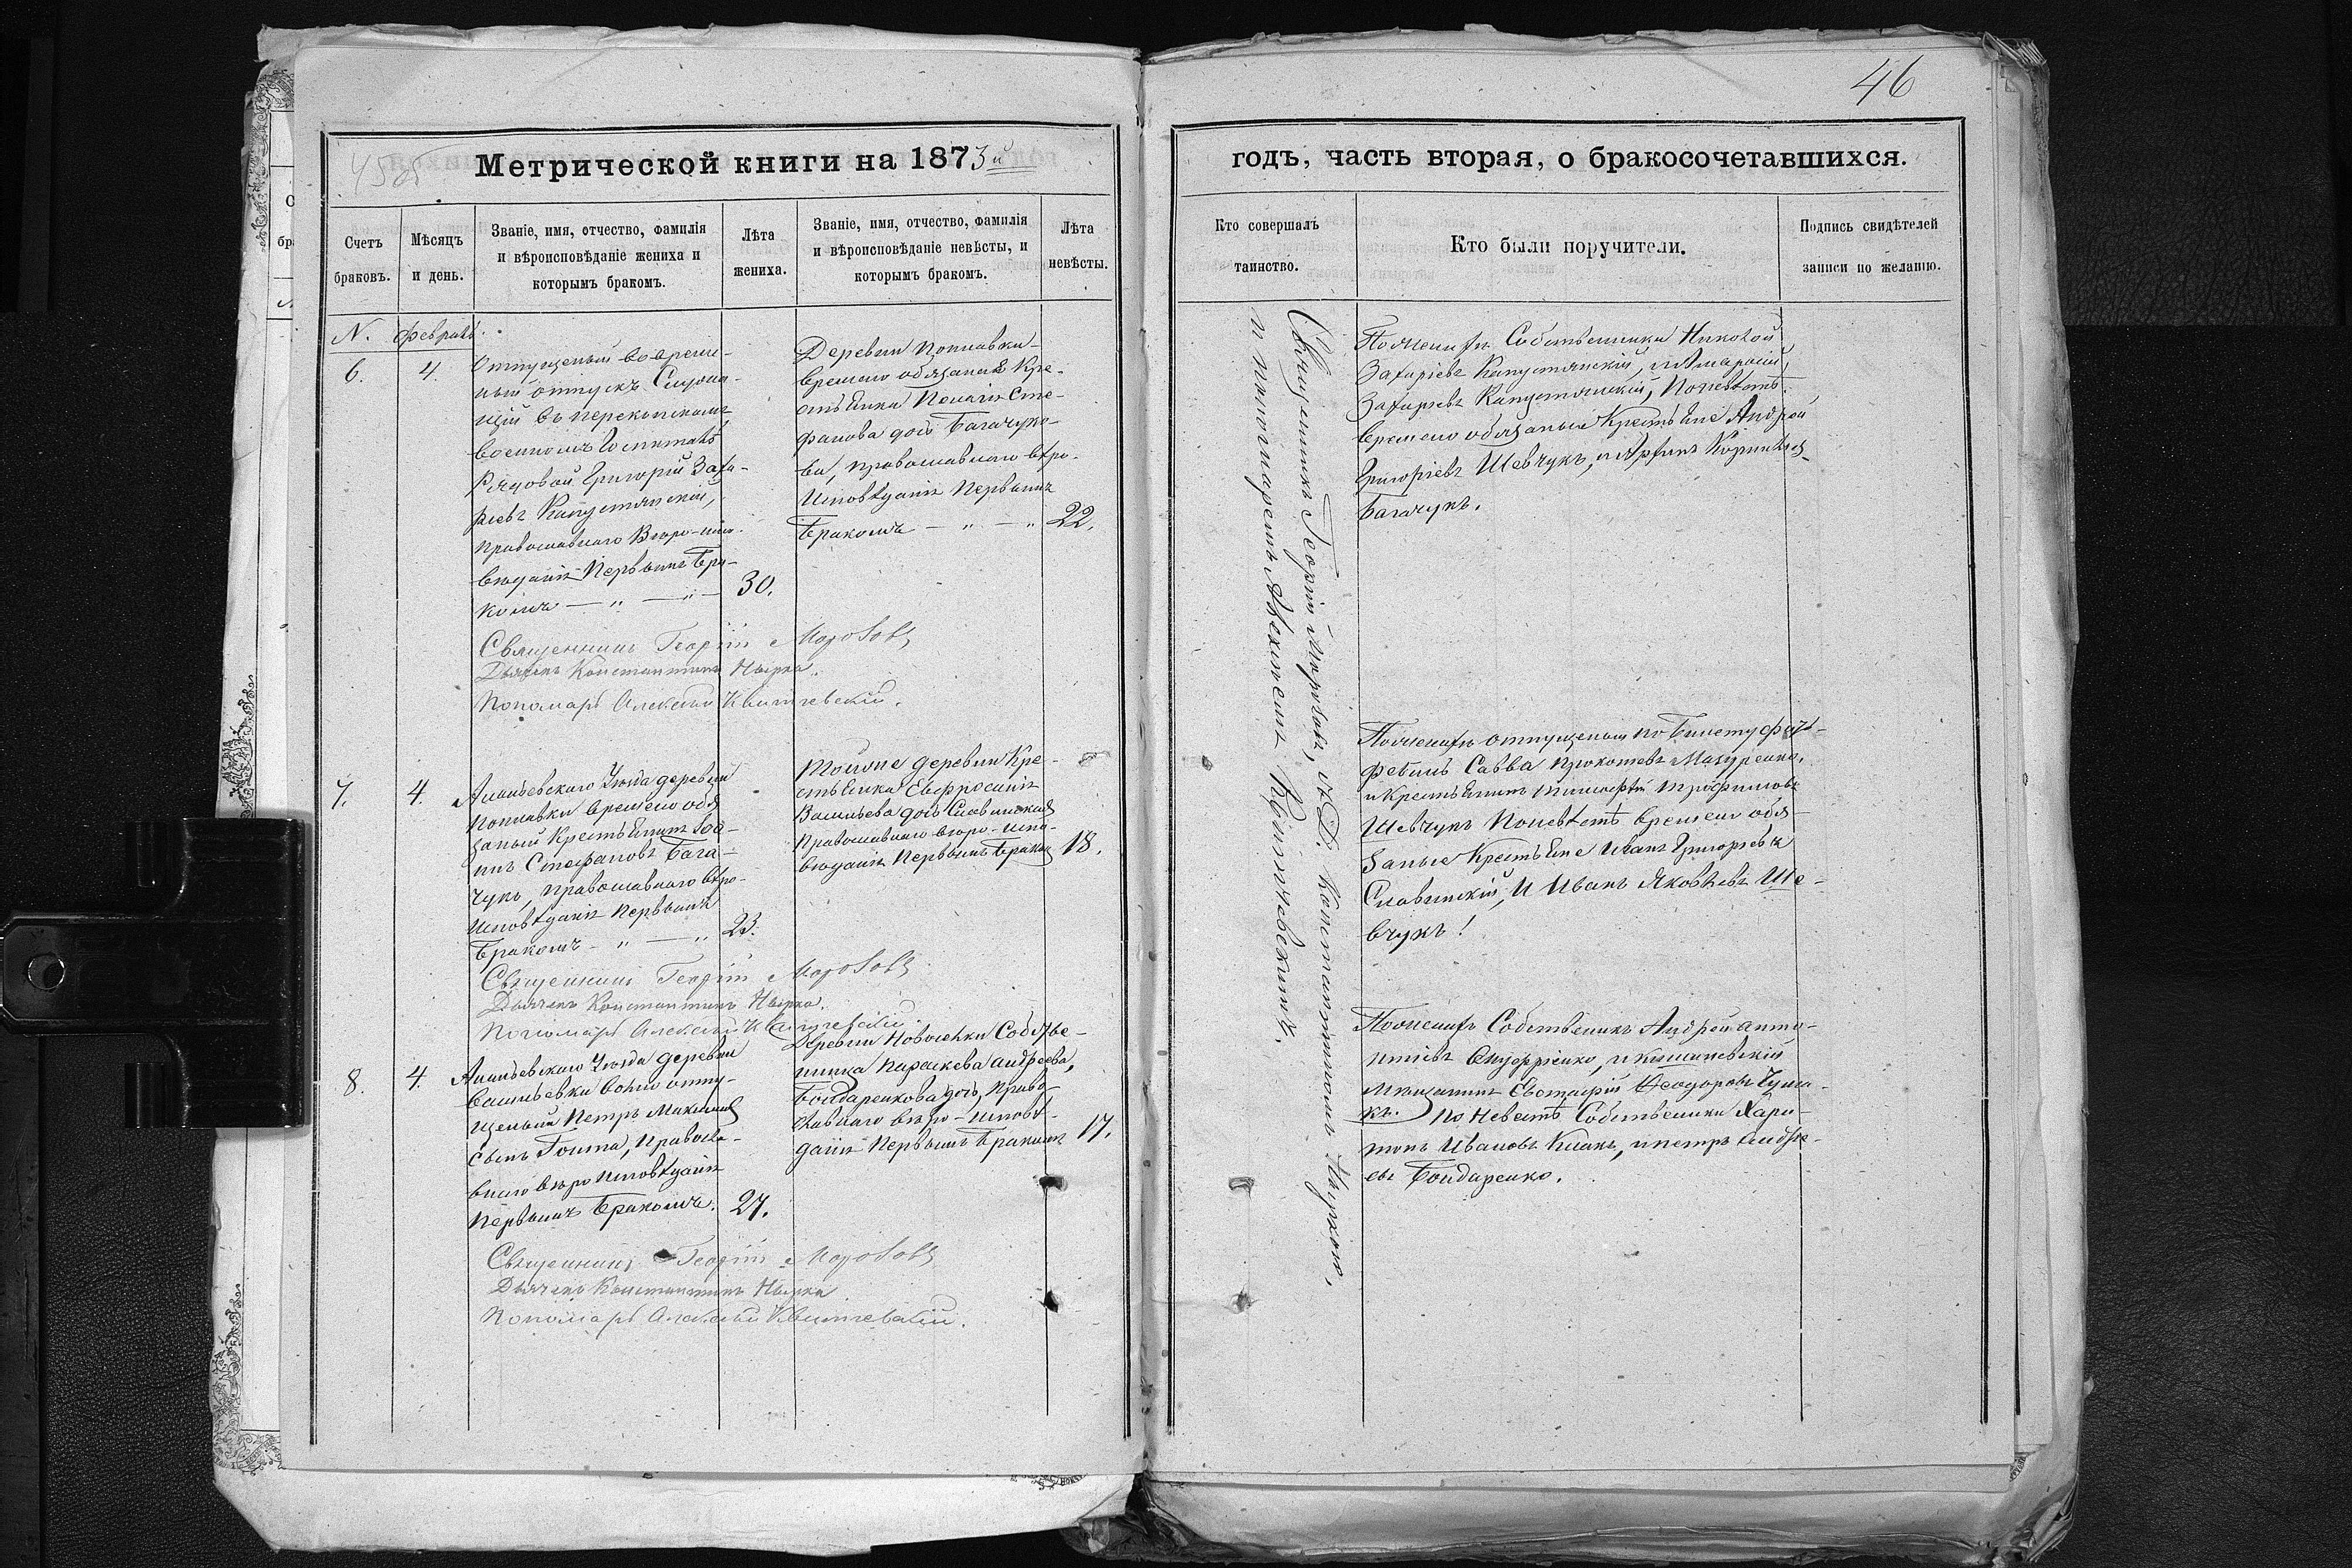 45об
Метрической книги на 1873й
Счетъ браковъ.
Мѣсяцъ и день.
Званіе, имя, отчество, фамилія
и вѣроисповѣданіе жениха и
которымъ бракомъ.
Лѣта
жениха.
Званіе, имя, отчество, фамилія
и вѣроисповѣданіе невѣсты, и
которымъ бракомъ.
Лѣта
невѣсты.
N. Февраль
6. 4.
Отпущеный во време-
ный отпускъ Служа-
щій въ перекопскомъ
военномъ Госпиталѣ
Рядовой Григорій Заха-
ріевъ Капустянскій,
православнаго Вѣро-испо-
вѣданія Первымъ Бра-
комъ — „ — „ — 30.
Деревни Поплавки
времено обязаная Кре-
стьянка Пелагія Сте-
фанова дочь Багачуко-
ва, православнаго вѣро-
Исповѣданія Первымъ
Бракомъ — „ — „ 22.
Священникъ Георгій Морозовъ
Дьячекъ Константинъ
Пономарь Алексѣй Квитчевскій.
7. 4.
Ананьевскаго Уѣзда деревни
Поплавки времено обя
заный Крестьянинъ
Стефановъ Бага-
чукъ, православнаго вѣро-
Исповѣданія Первымъ
Бракомъ — „ — „ 23.
Тойже деревни Кре-
стьянка Евфросинія
Васильева дочь Славинская
Православнаго вѣро-испо-
вѣданія Первымъ Бракомъ 18.
Священникъ Георгій Морозовъ
Дьячекъ Константинъ
Пономарь Алексѣй Квитчевскій.
8. 4.
Ананьевскаго Уѣзда деревни
Васильевки вольно отпу-
щеный Петръ Максимовъ
сынъ Гонта, Правосла-
внаго вѣро исповѣданія
Первымъ Бракомъ. 27.
Деревни Новоселки Собстве-
ница Параскева Андреева,
Бондаренкова дочь, Право-
славнаго вѣро-исповѣ-
данія Первымъ Бракомъ 17.
Священникъ Георгій Морозовъ
Дьячекъ Константинъ
Пономарь Алексѣй Квитчевскій.
46
годъ, часть вторая, о бракосочетавшихся.
Кто совершалъ
таинство.
Кто были поручители.
Подпись свидѣтелей
записи по желанію.
Священникъ Георгій Морозовъ, и Д. Константиномъ
и пономаремъ Алексѣемъ Квитчевскимъ.
По женихѣ Собственики Николай
Захаріевъ Капустянскій, и Макарій
Захаріевъ Капустянскій, По невѣстѣ
времено обязаные Крестьяне Андрей
Григоріевъ Шевчукъ, и
Багачукъ.
По женихѣ отпущеный по билету
фебель Савва Прокопіевъ Мазуренко,
и Крестьянинъ Тимофѣй Трофимовъ
Шевчукъ По невѣстѣ времено обя-
заные Крестьяне Иванъ Григоріевъ
Славинскій, И Иванъ Яковлевъ Ше-
вчукъ!
По женихѣ Собственикъ Андрей Анто-
ніевъ Онуфріенко, и Кишиневскій
мѣщанинъ Евстафій Феодоровъ Чума-
къ. По Невестѣ Собственики Хари-
тонъ Ивановъ Кліакъ, и Петръ Андре-
евъ Бондаренко.